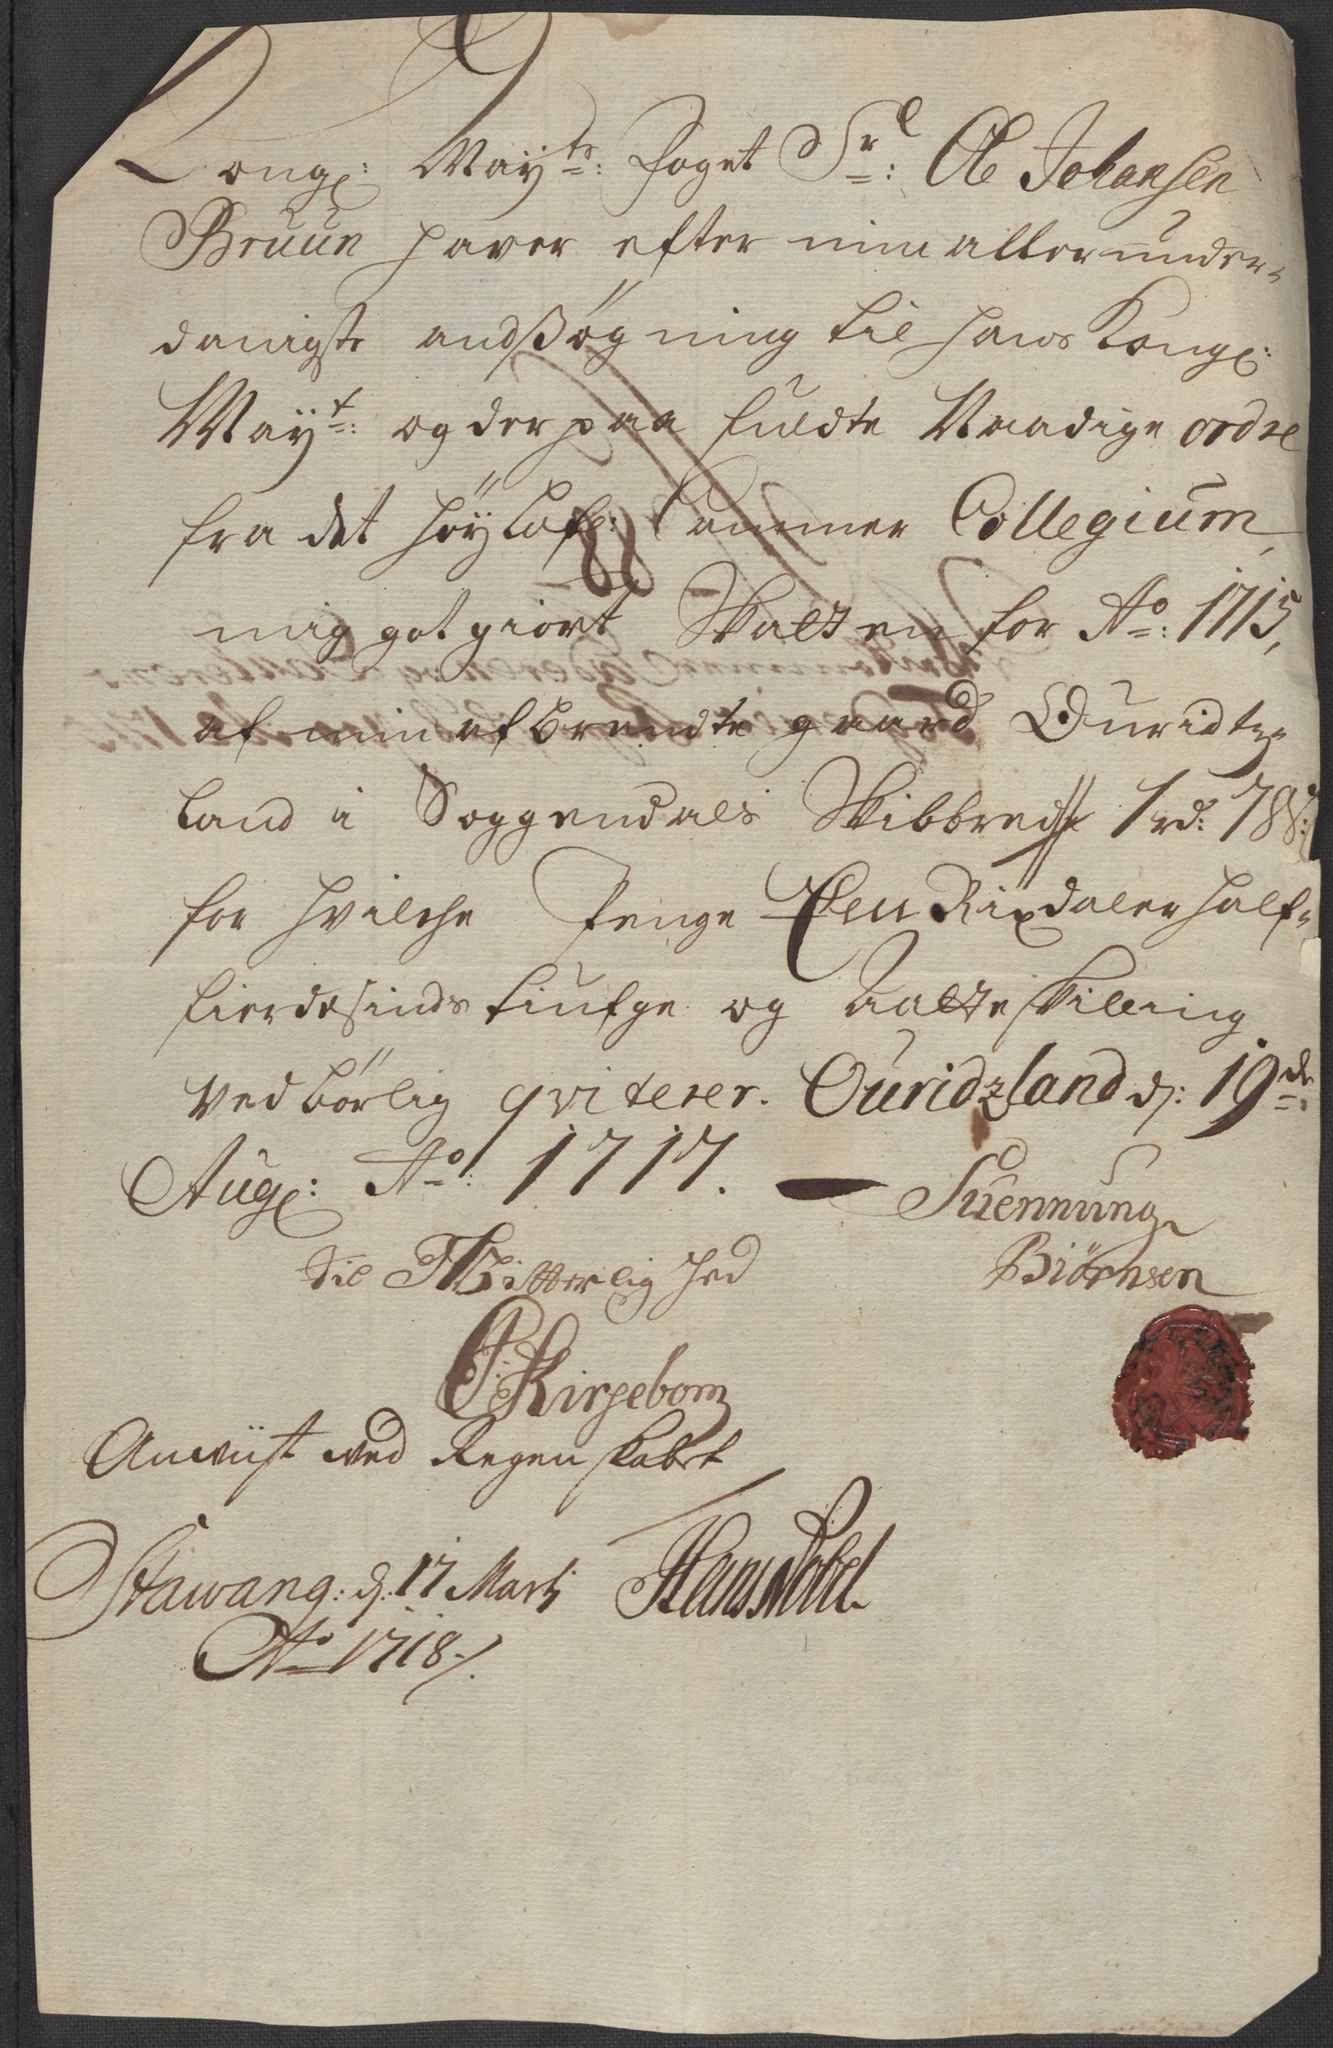 Kongl: Mayts: foget Sr: Ole Johansen
Bruun haver efter min allerunder-
danigste andsøgning til hans Kongl:
Mayt: og der paa fuldte Naadige ordre
fra det höylofl: Cammer Collegium,
mig got giort Skatten for Ao: 1715,
af min afbrendte gaard Ouridtz-
land i Soggendals Skibbrede 1 rd: 78 s:
for hvilche Penge Een Rixdaler half-
fierdesinds tiufge og Aatte skilling
ved børlig qviterer. Ouridzland d: 19de
Augl: Ao: 1717. Suennung
Biörnsen
Til Witterlighed
P: Kirsebom
Anviist ved Regenskabet
Stawang: d. 17 Marti Hans Nobel
Ao 1718